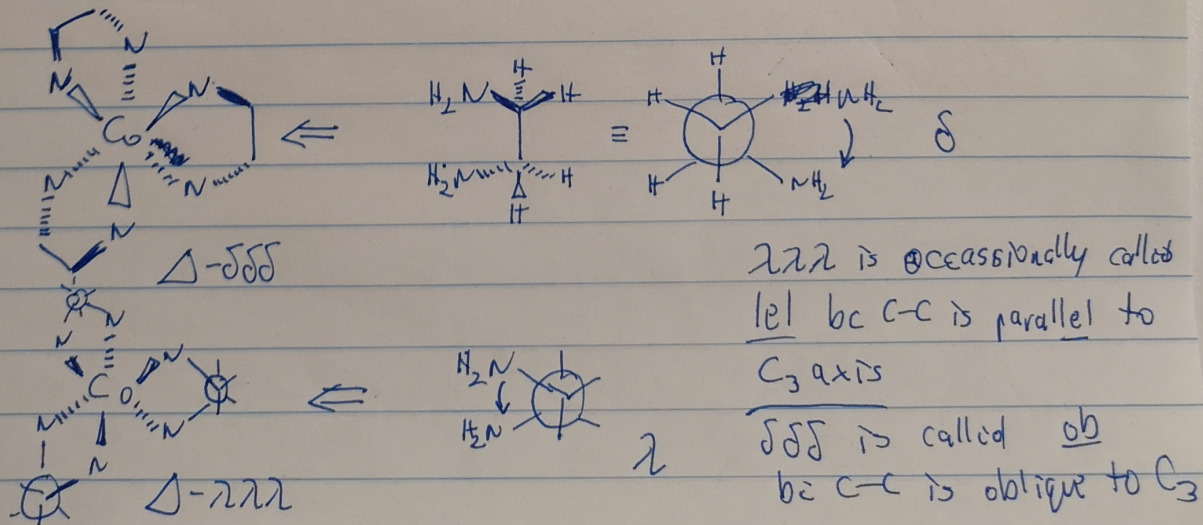 N
N
N
Co
N
N
N
Δ-δδδ
⇐
H
H₂N
H
H₂N
H
H
≡
H
H
NH₂
H
H
NH₂
δ
N
N
N
Co
N
N
N
Δ-λλλ
⇐
H₂N
H₂N
λ
λλλ is occassionally called
lel bc C-C is parallel to
C₃ axis
δδδ is called ob
bc C-C is oblique to C₃